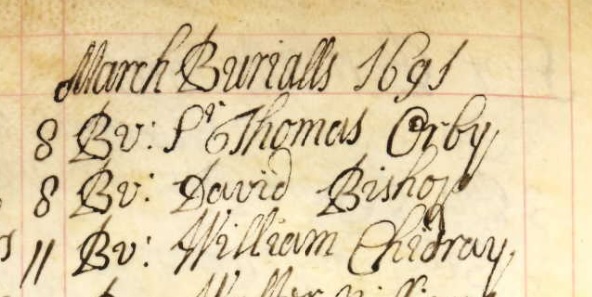 March Burialls 1691
8 Bu: Sr Thomas Orby
8 Bu: David Bishop
11 Bu: William Chidray